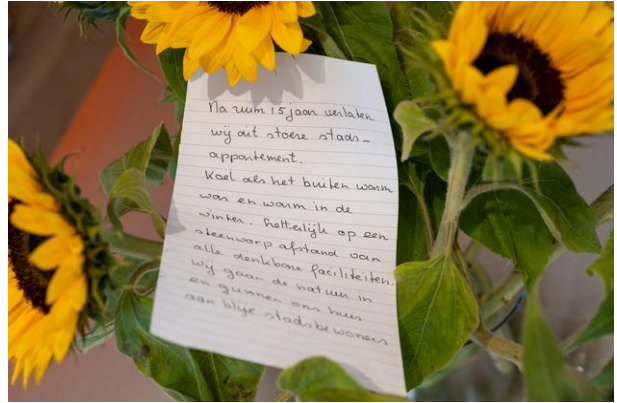 Na ruim 15 jaar verlaten
wij dit stoere stads-
appartement.
Koel als het buiten warm
was en warm in de
winter. Letterlijk op een
steenworp afstand van
alle denkbare faciliteiten.
Wij gaan de natuur in
en gunnen ons huis
aan blije stadsbewoners